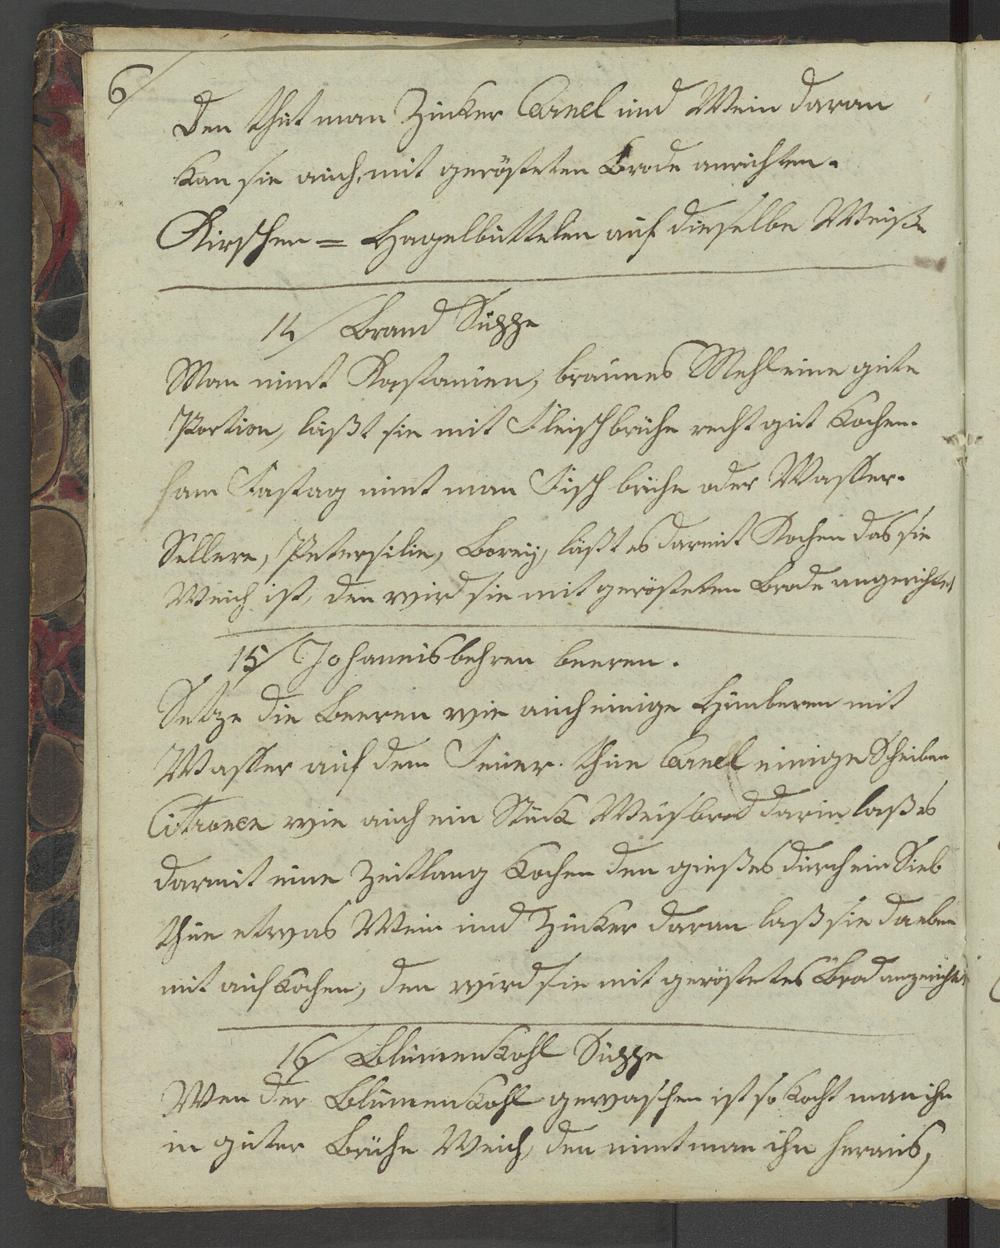 6/
Den thut man Zucker Canel und Wein daran
kan sie auch mit gerösteten Brode anrichten.
Kirschen = Hagelbuttelen auf dieselbe Weise
14/ Brand Suppe
Man nimt Kastanien, braunes Mehl eine gute
Portion, läßt sie mit Fleischbrühe recht gut kochen.
am Fastag nimt man Fisch brühe oder Wasser.
Sellere, Petersilie, läßt es darmit Kochen das sie
Weich ist, den wird sie mit gerösteten Brode angerichtet
15/ Johannisbehren beeren.
Setze die Beeren wie auch einige Himberen mit
Wasser auf dem Feuer. thue Canel einige Scheiben
Citronen wie auch ein Stück Weisbrod darin laß es
darmit eine Zeitlang kochen den gieß es durch ein Sieb
thue etwas Wein und Zucker daran laß sie
mit aufkochen, den wird sie mit geröstetes Brod angericht
16/ Blumenkohl Suppe
Wen der Blumenkohl gewaschen ist so kocht man ihn
in guter Brühe Weich, den nimt man ihn heraus,